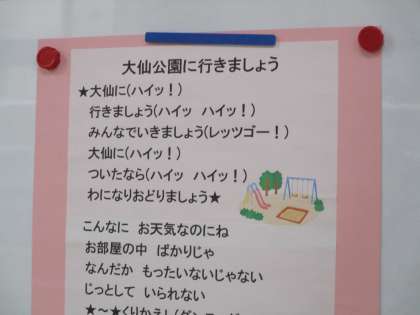 大仙公園に行きましょう
★大仙に(ハイッ！)
行きましょう(ハイッ　ハイッ！)
みんなでいきましょう(レッツゴー！)
大仙に(ハイッ！)
ついたなら(ハイッ　ハイッ！)
わになりおどりましょう★
こんなに　お天気なのにね
お部屋の中　ばかりじゃ
なんだか　もったいないじゃない
じっとして　いられない
★～★くりかえし